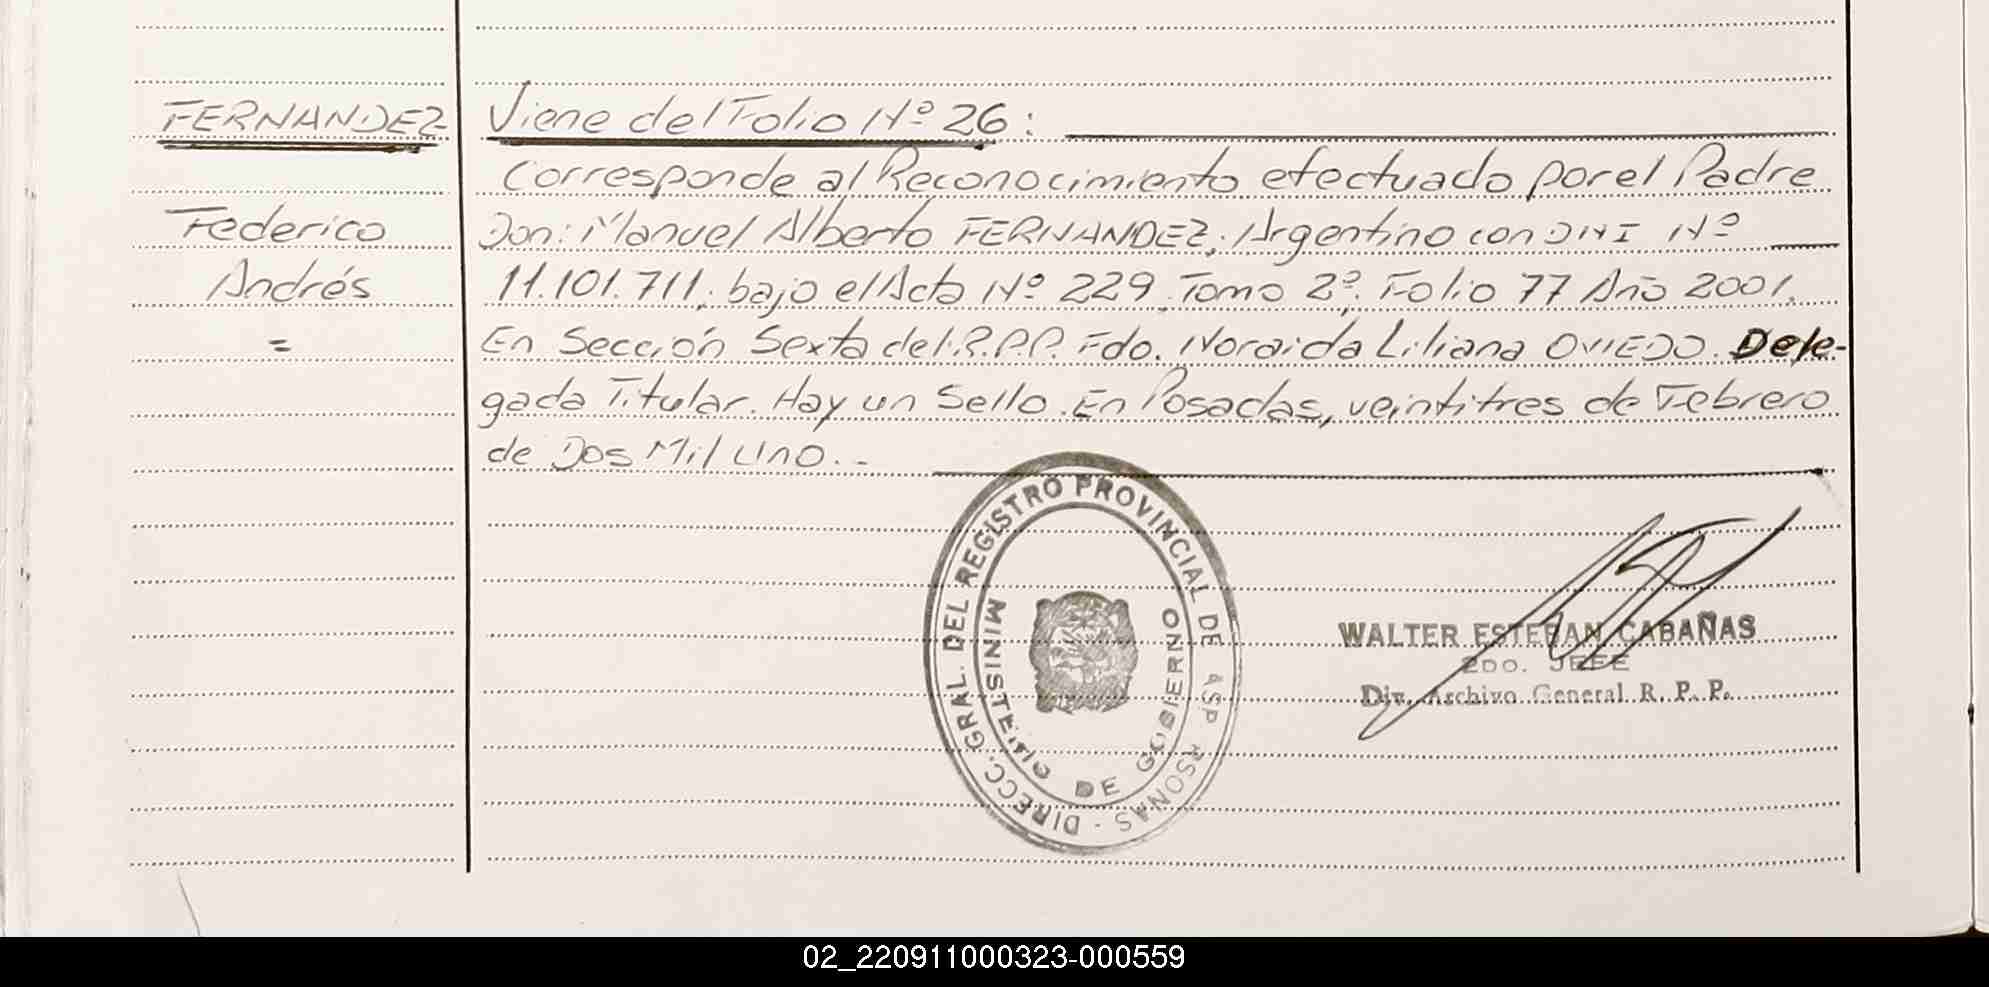 FERNANDEZ
Federico
Andrés
=
Viene del Folio Nº 26:
Corresponde al Reconocimiento efectuado por el Padre
Don: Manuel Alberto FERNANDEZ, Argentino con DNI Nº
11.101.711, bajo el Acta Nº 229 Tomo 2º. Folio 77 Año 2001.
En Sección Sexta del R.P.P. Fdo. Noraida Liliana OVIEDO. Dele-
gada Titular. Hay un Sello. En Posadas, veintitres de Febrero
de Dos Mil Uno.-
DIRECC. GRAL. DEL REGISTRO PROVINCIAL DE
MINISTERIO DE GOBIERNO
WALTER ESTEBAN CABAÑAS
2DO. JEFE
Div. Archivo General R. P. P.
02_220911000323-000559